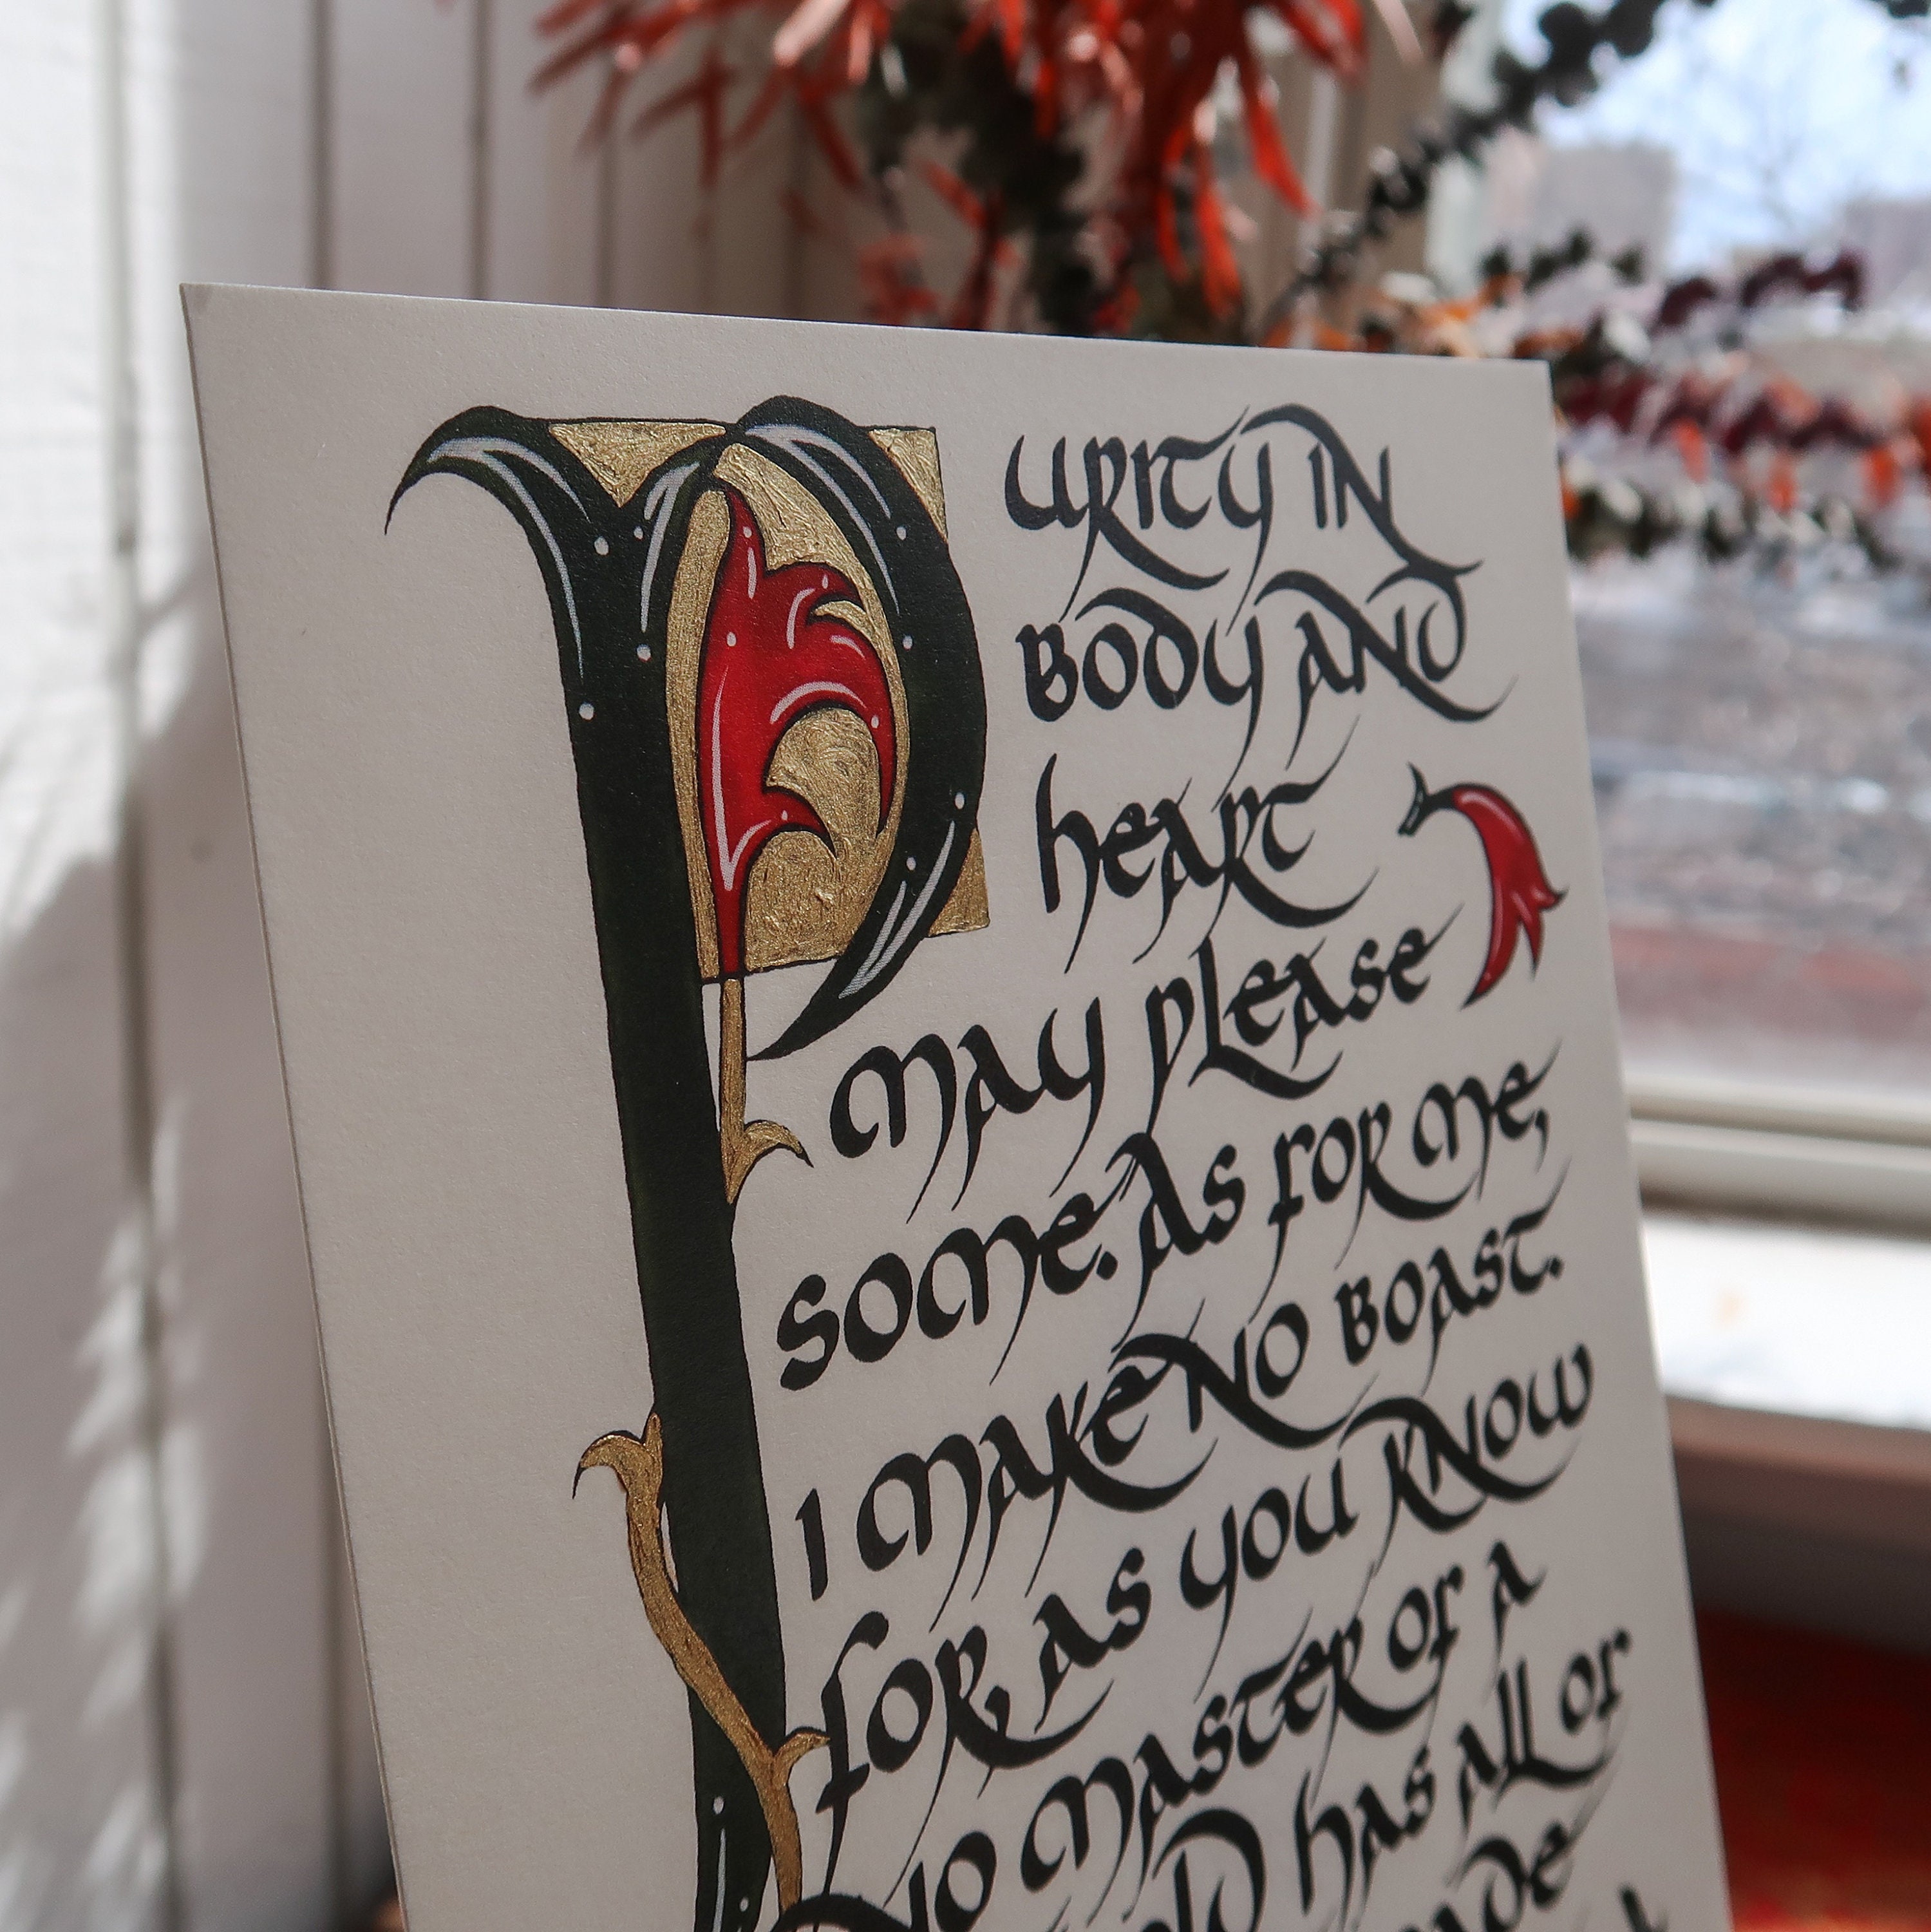 PURITY IN
BODY AND
heART
MAY pLeAse
soMe. As foR Me,
I MAKe NO BOAST.
foR AS YOU KNOW
NO MASTeR Of A
hAS All Of